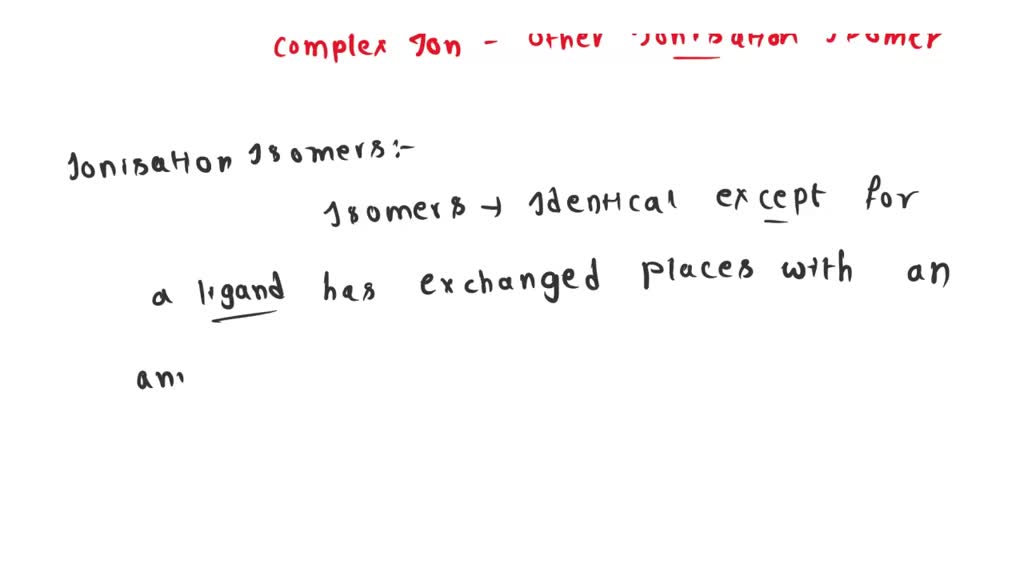 complex Ion - other Ionisation Isomer
Ionisation Isomers:-
Isomers → Identical except for
a ligand has exchanged places with an
ani